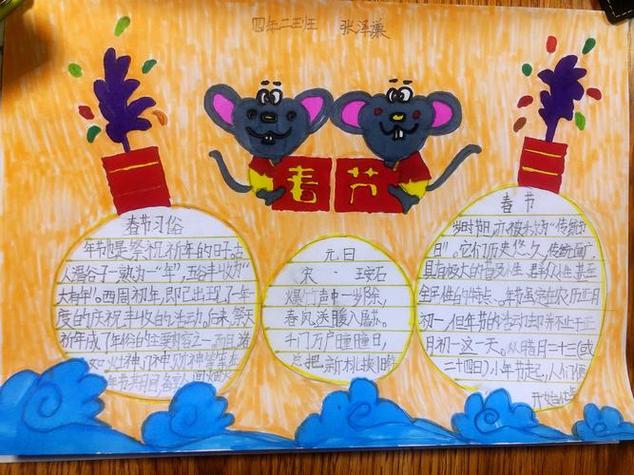 四年二班 张泽濂
春节
春节习俗
年节也是祭祝祈年的日子。古
人谓谷子一熟为一"年",五谷丰收为"
大有年"。西周初年,即已出现了一年
一度的庆祝丰收的活动。后来,祭天
祈年成了年俗的主要内容之一。而且,诸
如灶神、门神、财神
年节期间,
元日
宋·王安石
爆竹声中一岁除,
春风送暖入屠苏。
千门万户曈曈日,
总把新桃换旧符
春节
岁时节日,亦被称为"传统节
日"。它们历史悠久,
具有极大的普及性、群众性甚至
全民性的特点。年节虽定在农历正月
初一,但年节的活动却并不止于正
月初一这一天。从腊月二十三(或
二十四日)小年节起,人们便
开始